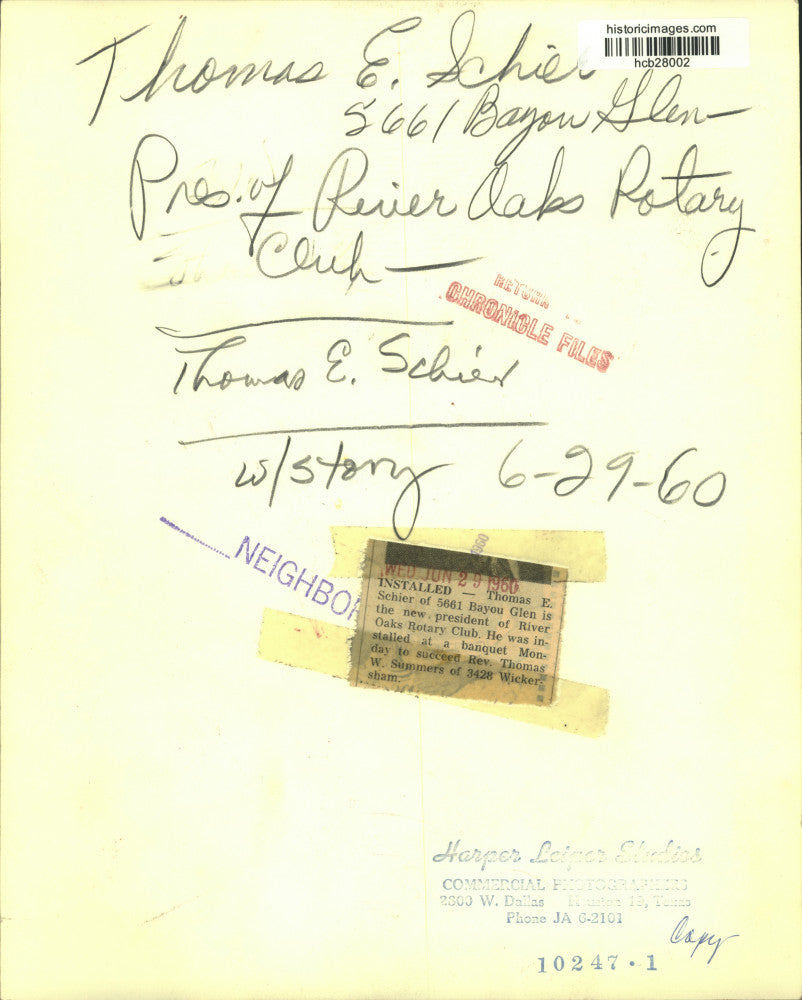 historicimages.com
hcb28002
Thomas E. Schier
5661 Bayou Glen—
Pres. of River Oaks Rotary
Club—
RETURN
CHRONICLE FILES
Thomas E. Schier
w/story 6-29-60
NEIGHBOR
1960
WED JUN 29 1960
INSTALLED — Thomas E.
Schier of 5661 Bayou Glen is
the new president of River
Oaks Rotary Club. He was in-
stalled at a banquet Mon-
day to succeed Rev. Thomas
W. Summers of 3428 Wicker-
sham.
Harper Leiper Studios
COMMERCIAL PHOTOGRAPHERS
2800 W. Dallas Houston 19, Texas
Phone JA 6-2101
Copy
10247·1